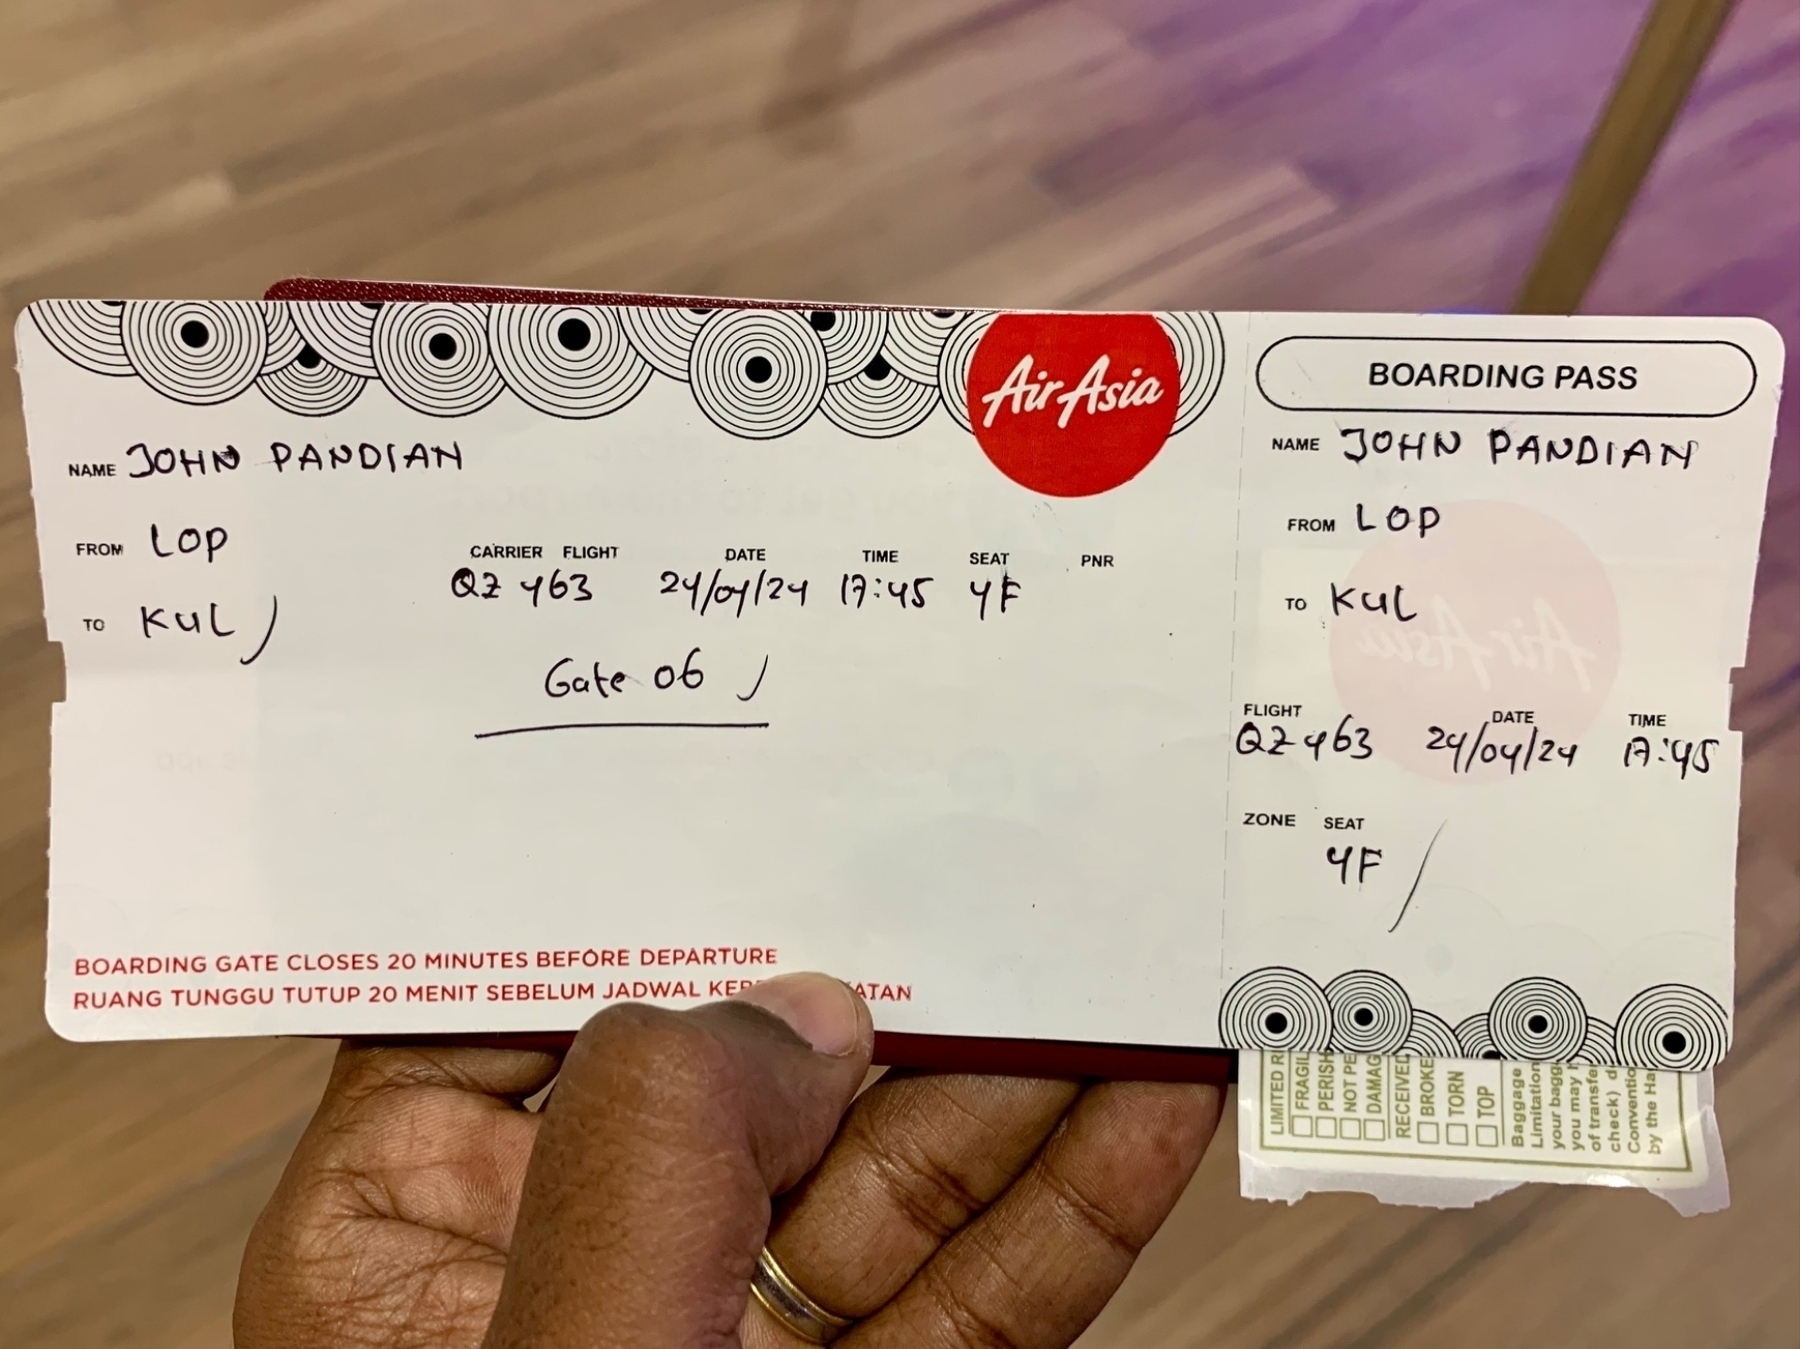 AirAsia
NAME JOHN PANDIAN
FROM LOP
TO KUL
CARRIER FLIGHT DATE TIME SEAT PNR
QZ 463 24/04/24 17:45 4F
Gate 06
BOARDING GATE CLOSES 20 MINUTES BEFORE DEPARTURE
RUANG TUNGGU TUTUP 20 MENIT SEBELUM JADWAL
BOARDING PASS
NAME JOHN PANDIAN
FROM LOP
TO KUL
FLIGHT DATE TIME
QZ 463 24/04/24 17:45
ZONE SEAT
4F
LIMITED
NOT
RECEIVED
TORN
TOP
Baggage
your
you may
of
check)
by the